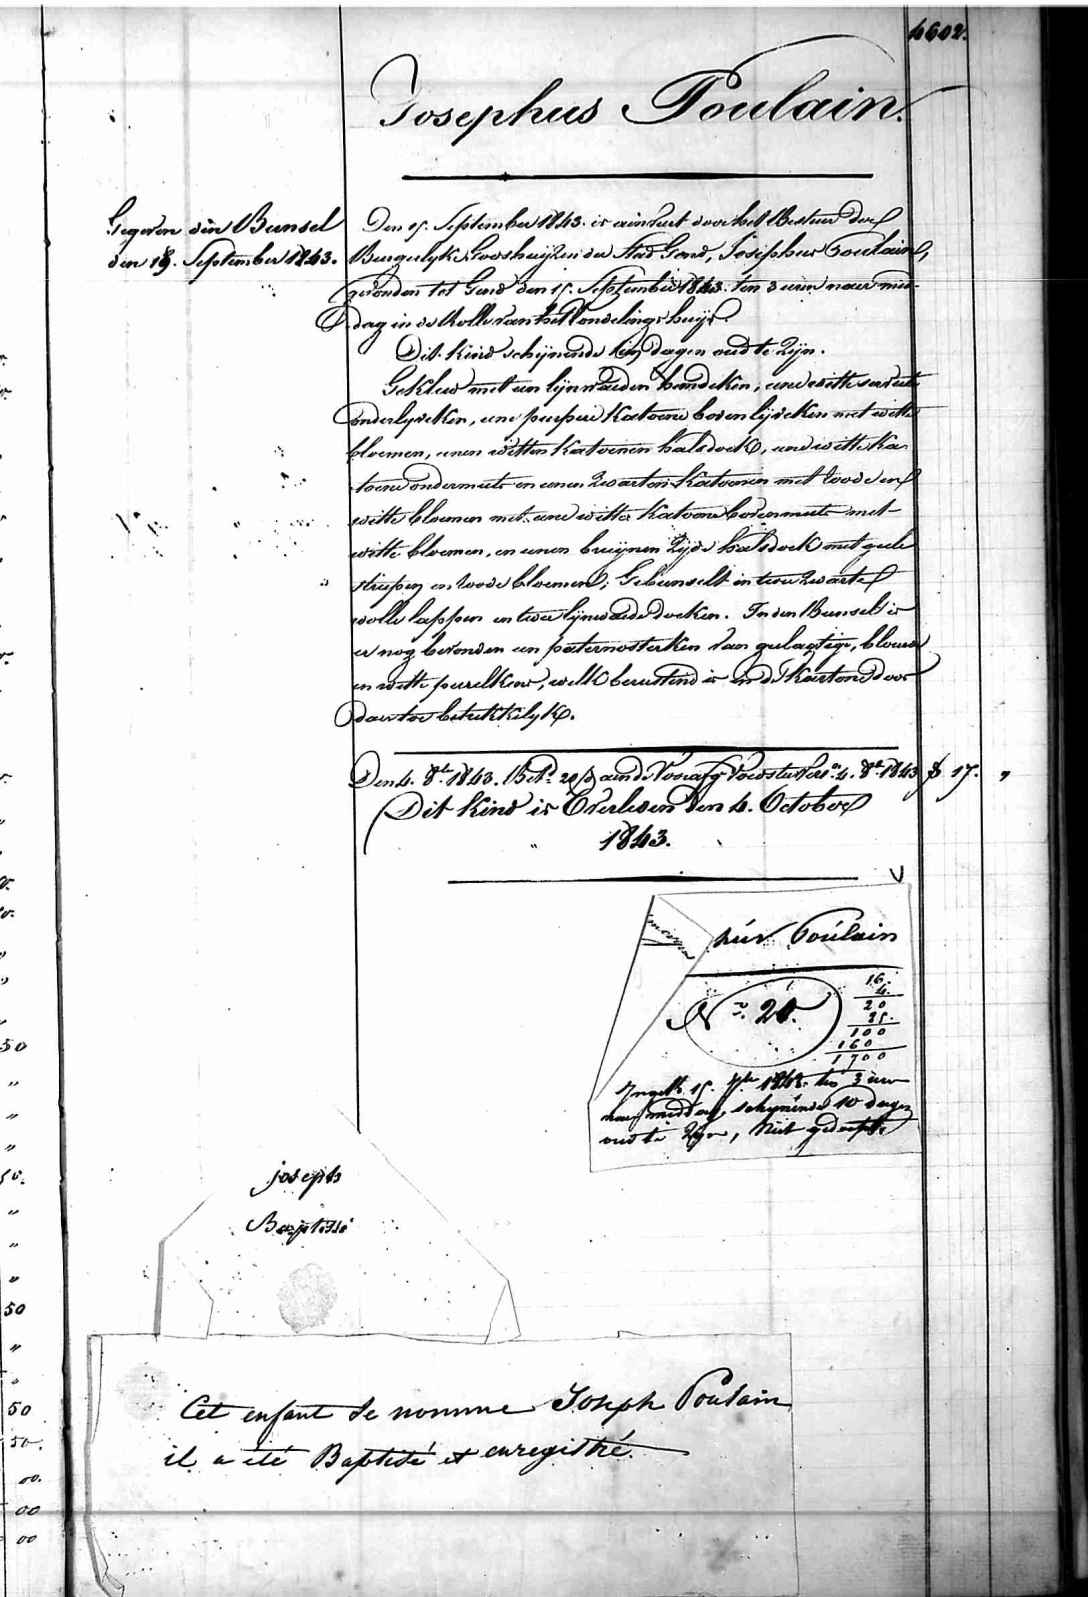 4602.
Josephus Poulain.
Gegeven den Bunsel
den 19. September 1843.
Den 15. September 1843. is aanveert door het Bestuer der
Burgerlyke Godshuyzen der Stad Gend, Josephus Poulain,
gevonden tot Gend den 15. September 1843. ten 3 uren naer mid-
dag in de Rolle van het Vondelingshuys.
Dit kind schynende tien dagen oud te zyn.
Gekleed met een lynwaeden hemdeken, eene witte
onderlyveken, eene purpere katoene bovenlyveken met witte
bloemen, eenen witten katoenen halsdoek, eene witte ka-
toene ondermuts en eenen zwarten katoenen met roode en
witte bloemen met eene witte katoene bovenmuts met
witte bloemen, en eenen bruynen zyde halsdoek met gele
striepen en roode bloemen; Gebunselt in twee zwarte
wolle lappen en twee lynwaede doeken. In den Bunsel is
er nog bevonden een paternosterken van geelagtige, blauwe
en witte peirelkens, welk berustend is in de Kartons door
daertoe betrekkelyk.
Den 4. 8b. 1843. Bet. 20 aen de Voedster 4. 8b. 1843 17. "
Dit kind is Overleden den 4. October
1843.
phus Poulain
N. 20.
16.
4.
20
25.
100
160
1700
15. 7ber 1843. ten 3 uer
naer middag, schynende 10 dagen
oud te Zyn, Niet gedoopt
joseph
Baptisé
Cet enfant se nomme Joseph Poulain
il a été Baptisé et enregistré.
50
50
50
50.
00.
00
00